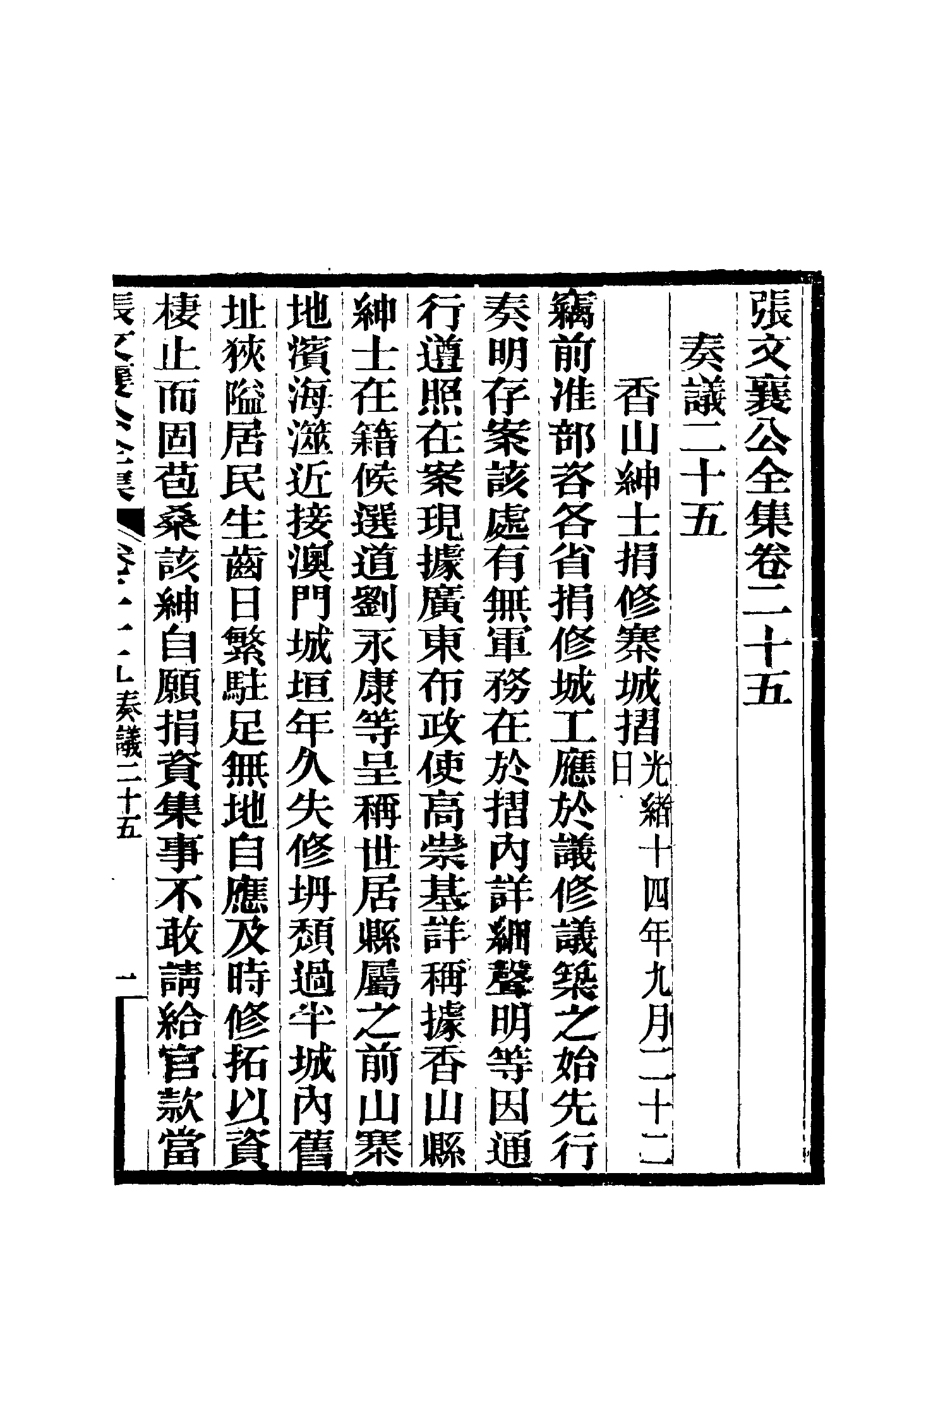 張文襄公全集卷二十五
奏議二十五
香山紳士捐修寨城摺光緒十四年九月二十二日
竊前准部咨各省捐修城工應於議修議築之始先行
奏明存案該處有無軍務在於摺內詳細聲明等因通
行遵照在案現據廣東布政使高崇基詳稱據香山縣
紳士在籍候選道劉永康等呈稱世居縣屬之前山寨
地濱海澨近接澳門城垣年久失修坍頹過半城內舊
址狹隘居民生齒日繁駐足無地自應及時修拓以資
棲止而固苞桑該紳自願捐資集事不敢請給官款當
張文襄公全集 卷二十五 奏議二十五 一